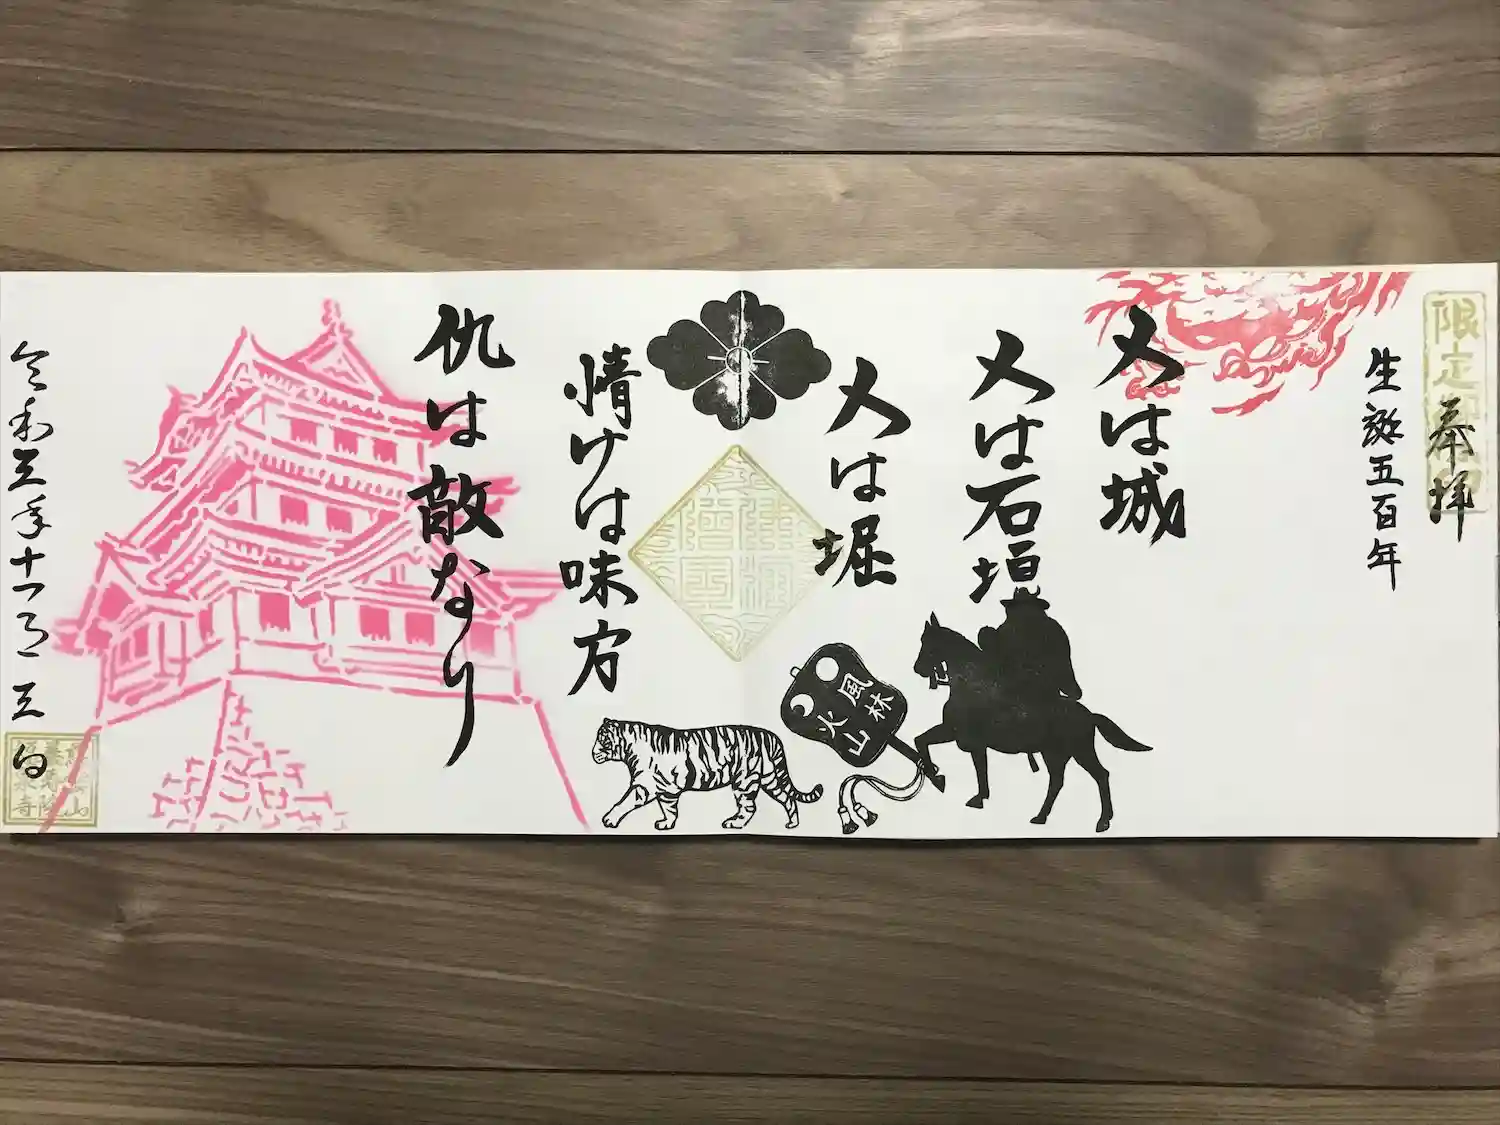 奉拝
限定
生誕五百年
人は城
人は石垣
人は堀
風林
火山
情けは味方
仇は敵なり
令和三年十一月三日